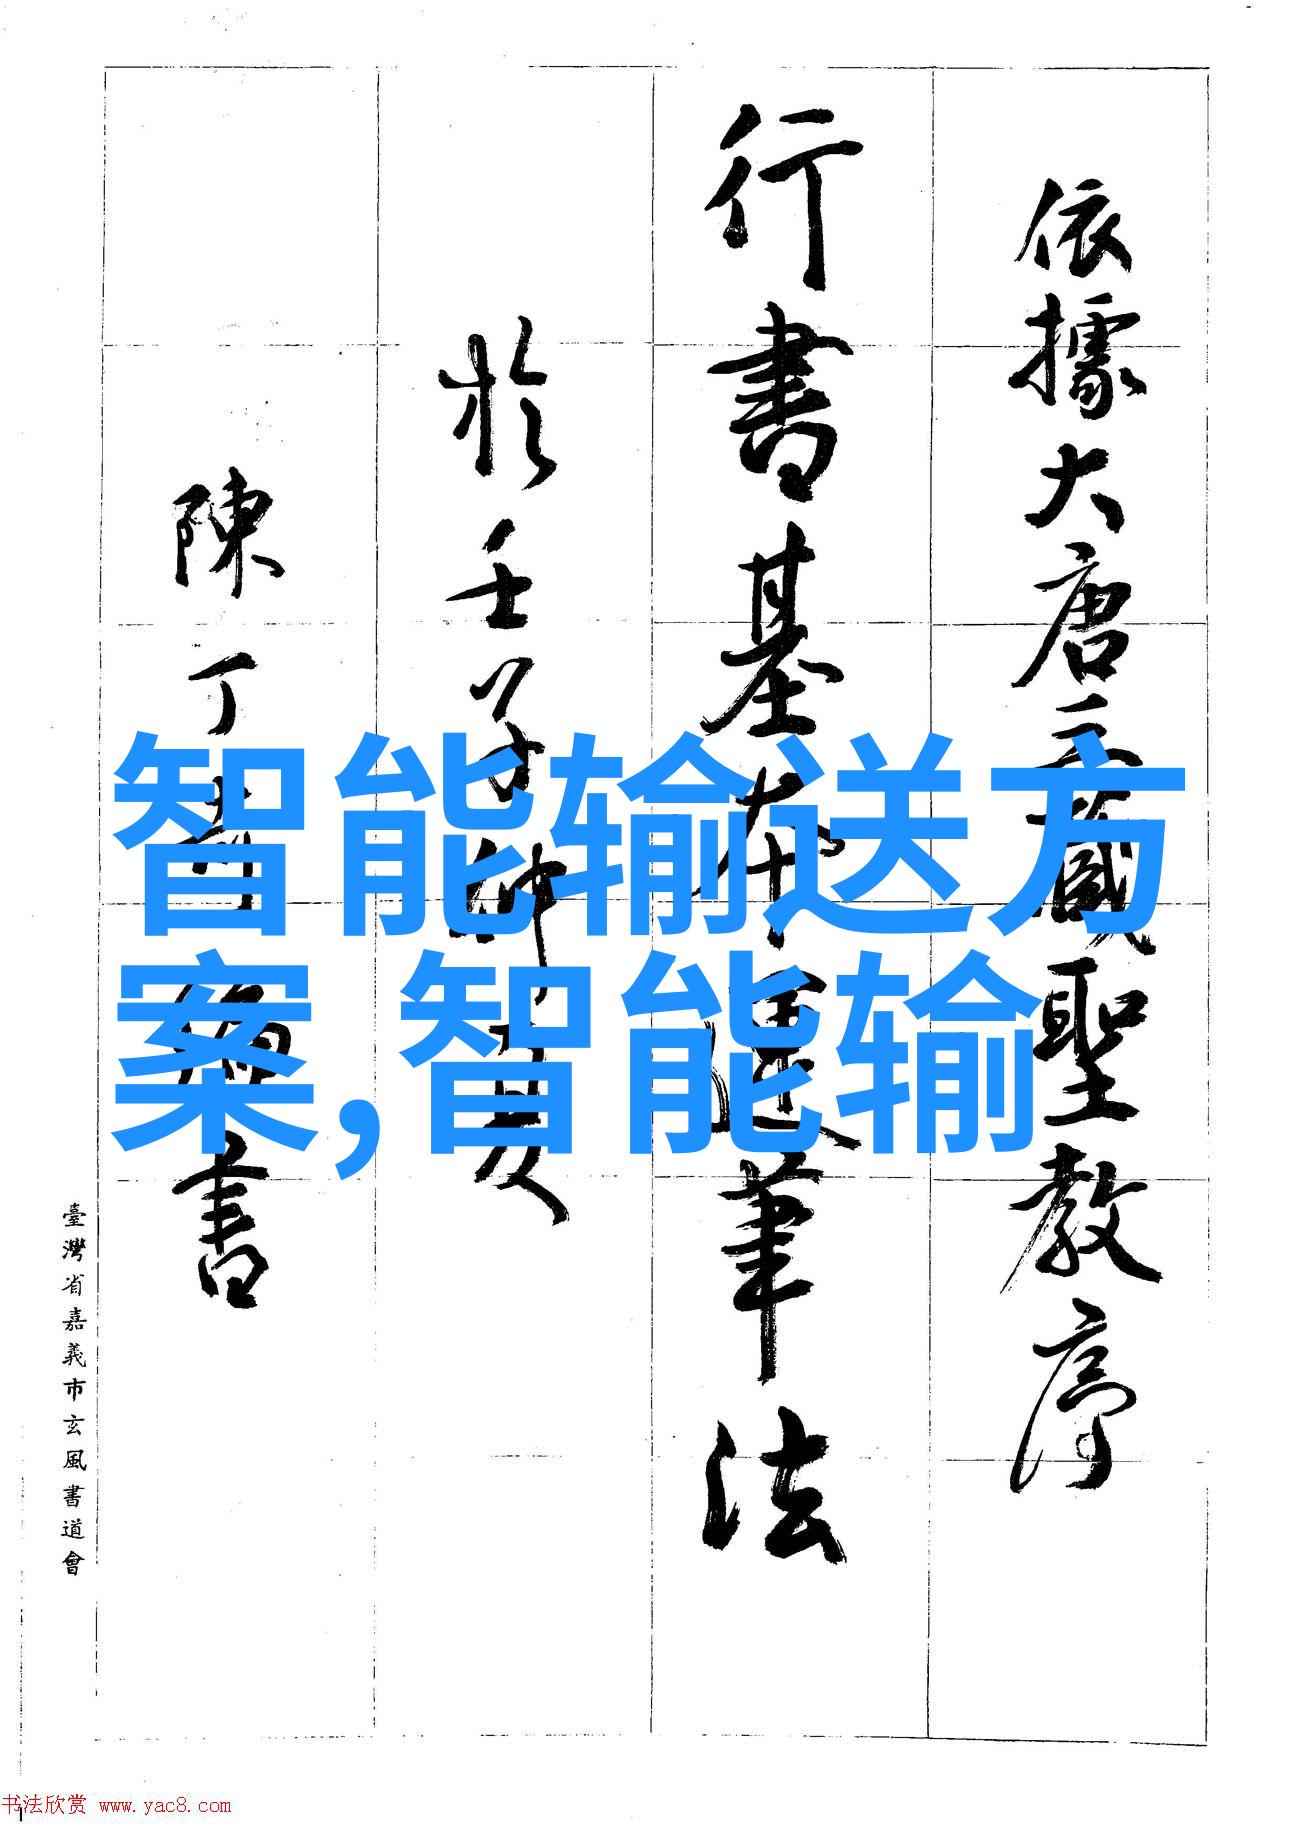 依據大唐三藏聖教序
行書基本運筆法
於壬子仲夏
陳丁奇編書
臺灣省嘉義市玄風書道會
智能输送方
案,智能输
书法欣赏 www.yac8.com
1